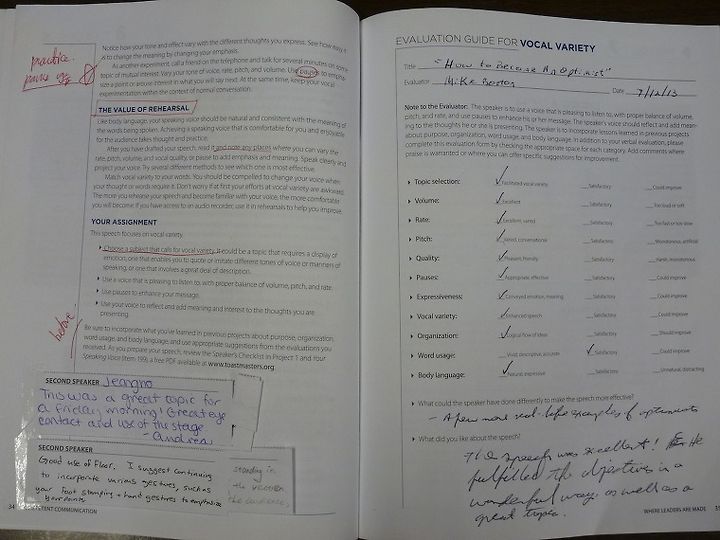 practice.
pause
Notice how your tone and effect vary with the different thoughts you express. See how easy it
is to change the meaning by changing your emphasis.
As another experiment, call a friend on the telephone and talk for several minutes on some
topic of mutual interest. Vary your tone of voice, rate, pitch, and volume. Use pauses to empha-
size a point or arouse interest in what you will say next. At the same time, keep your vocal
experimentation within the context of normal conversation.
THE VALUE OF REHEARSAL
Like body language, your speaking voice should be natural and consistent with the meaning of
the words being spoken. Achieving a speaking voice that is comfortable for you and enjoyable
for the audience takes thought and practice.
After you have drafted your speech, read it and note any places where you can vary the
rate, pitch, volume, and vocal quality, or pause to add emphasis and meaning. Speak clearly and
project your voice. Try several different methods to see which one is most effective.
Match vocal variety to your words. You should be compelled to change your voice when
your thought or words require it. Don't worry if first your efforts at vocal variety are awkward.
The more you rehearse your speech and become familiar with your voice, the more comfortable
you will become. If you have access to an audio recorder, use it in rehearsals to help you improve.
YOUR ASSIGNMENT
This speech focuses on vocal variety.
Choose a subject that calls for vocal variety. It could be a topic that requires a display of
emotion, one that enables you to quote or imitate different tones of voice or manners of
speaking, or one that involves a great deal of description.
Use a voice that is pleasing to listen to, with proper balance of volume, pitch, and rate.
Use pauses to enhance your message.
Use your voice to reflect and add meaning and interest to the thoughts you are
presenting.
before
Be sure to incorporate what you've learned in previous projects about purpose, organization,
word usage, and body language, and use appropriate suggestions from the evaluations you
received. As you prepare your speech, review the Speaker's Checklist in Project 1 and Your
Speaking Voice (Item 199), a free PDF available at www.toastmasters.org.
SECOND SPEAKER Jeongho
This was a great topic for
a friday morning! Great eye
contact and use of the stage
- Andrea
SECOND SPEAKER
Good use of floor. I suggest continuing
to incorporate various gestures, such as
your foot stamping + hand gestures to emphasize
your points
standing in
the
the audience,
34 COMPETENT COMMUNICATION
EVALUATION GUIDE FOR VOCAL VARIETY
Title "How to Become An Optimist"
Evaluator Mike Date 7/12/13
Note to the Evaluator: The speaker is to use a voice that is pleasing to listen to, with proper balance of volume,
pitch, and rate, and use pauses to enhance his or her message. The speaker's voice should reflect and add mean-
ing to the thoughts he or she is presenting. The speaker is to incorporate lessons learned in previous projects
about purpose, organization, word usage, and body language. In addition to your verbal evaluation, please
complete this evaluation form by checking the appropriate space for each category. Add comments where
praise is warranted or where you can offer specific suggestions for improvement.
Topic selection: ✓ Facilitated vocal variety Satisfactory Could improve
Volume: ✓ Excellent Satisfactory Too loud or soft
Rate: ✓ Excellent, varied Satisfactory Too fast or too slow
Pitch: ✓ Varied, conversational Satisfactory Monotonous, artificial
Quality: ✓ Pleasant, friendly Satisfactory Harsh, monotonous
Pauses: ✓ Appropriate, effective Satisfactory Could improve
Expressiveness: ✓ Conveyed emotion, meaning Satisfactory Could improve
Vocal variety: ✓ Enhanced speech Satisfactory Could improve
Organization: ✓ Logical flow of ideas Satisfactory Should improve
Word usage: Vivid, descriptive, accurate ✓ Satisfactory Could improve
Body language: ✓ Natural, expressive Satisfactory Unnatural, distracting
What could the speaker have done differently to make the speech more effective?
- A few more real-life examples of optimists
What did you like about the speech?
The speech was excellent! He
fulfilled the objectives in a
wonderful way as well as a
great topic.
WHERE LEADERS ARE MADE 35